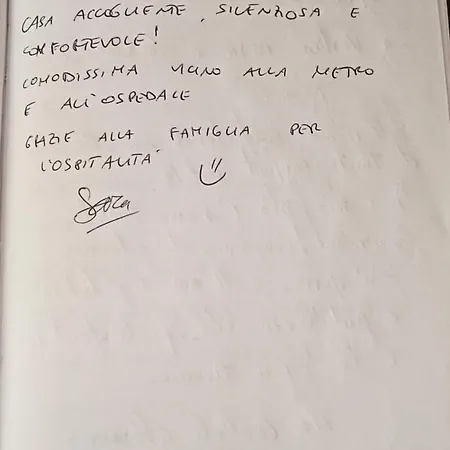 CASA ACCOGLIENTE, SILENZIOSA E
CONFORTEVOLE!
COMODISSIMA VICINO ALLA METRO
E ALL'OSPEDALE
GRAZIE ALLA FAMIGLIA PER
L'OSPITALITÀ